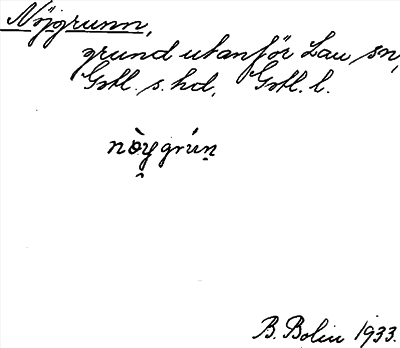 Nöjgrunn,
grund utanför Lau sn,
Gotl. s. hd, Gotl. l.
nòygrún
B. Bolin 1933.